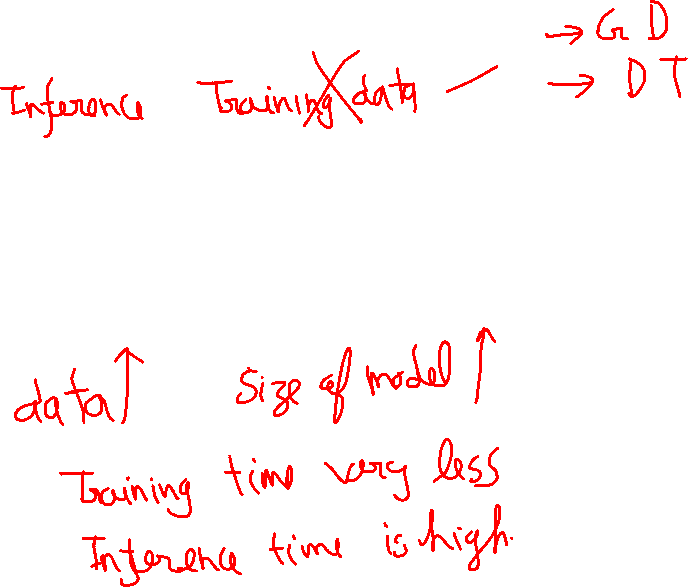 → G D
Inference Training data — → D T
data ↑ Size of model ↑
Training time very less
Inference time is high.